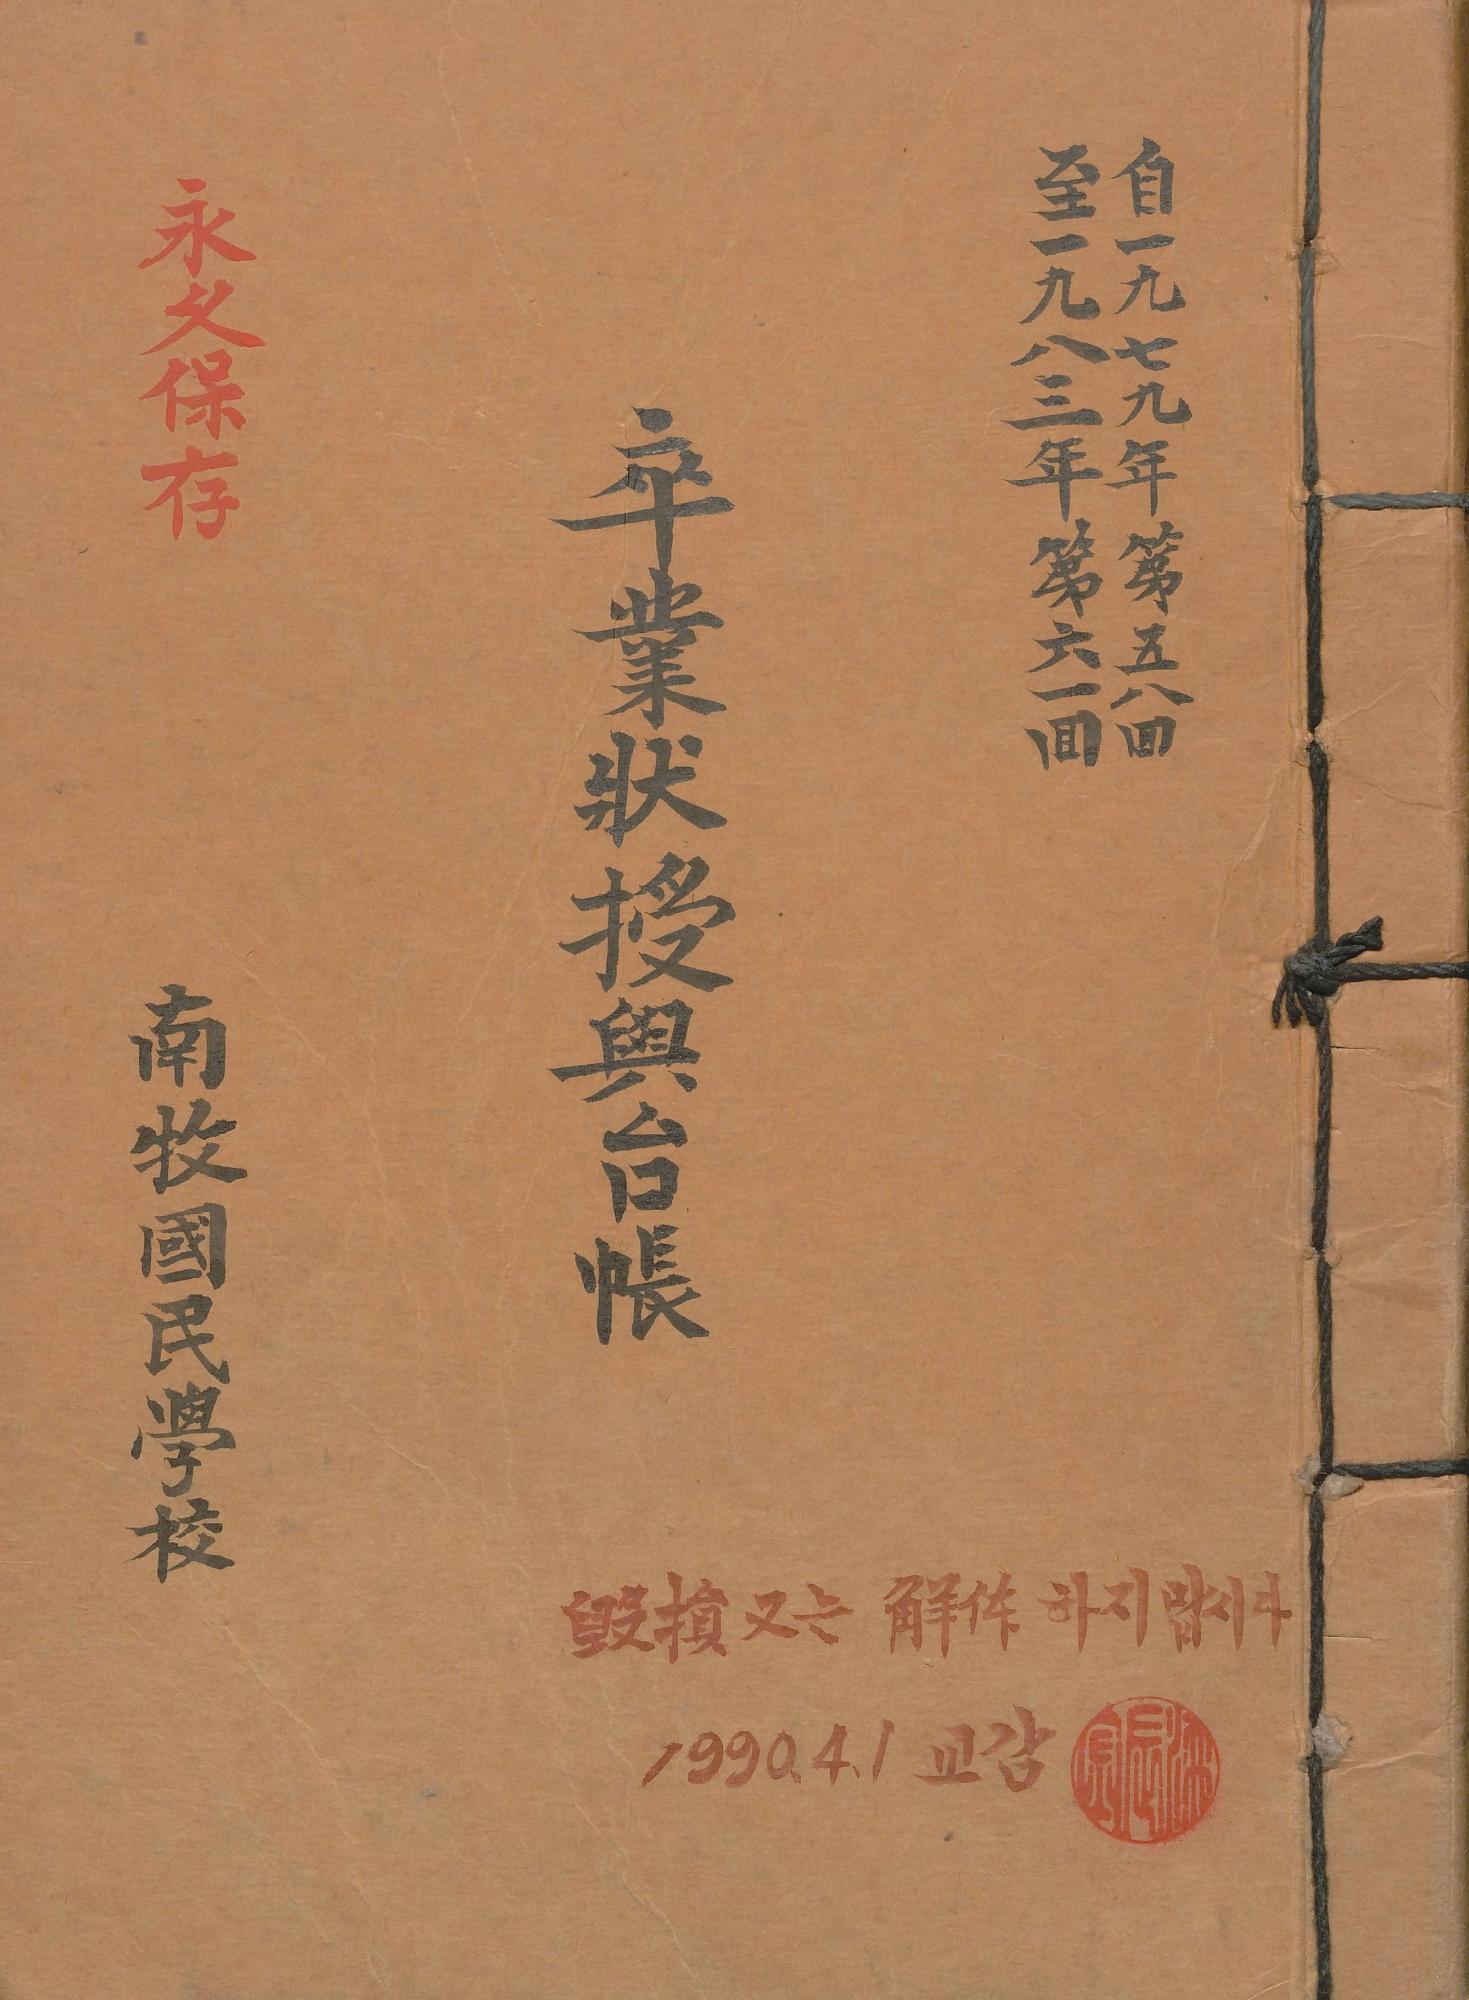 自一九七九年第五八回
至一九八三年第六一回
卒業狀授與台帳
永久保存
南牧國民學校
毁損 又는 解体 하지 맙시다
1990.4.1 교감